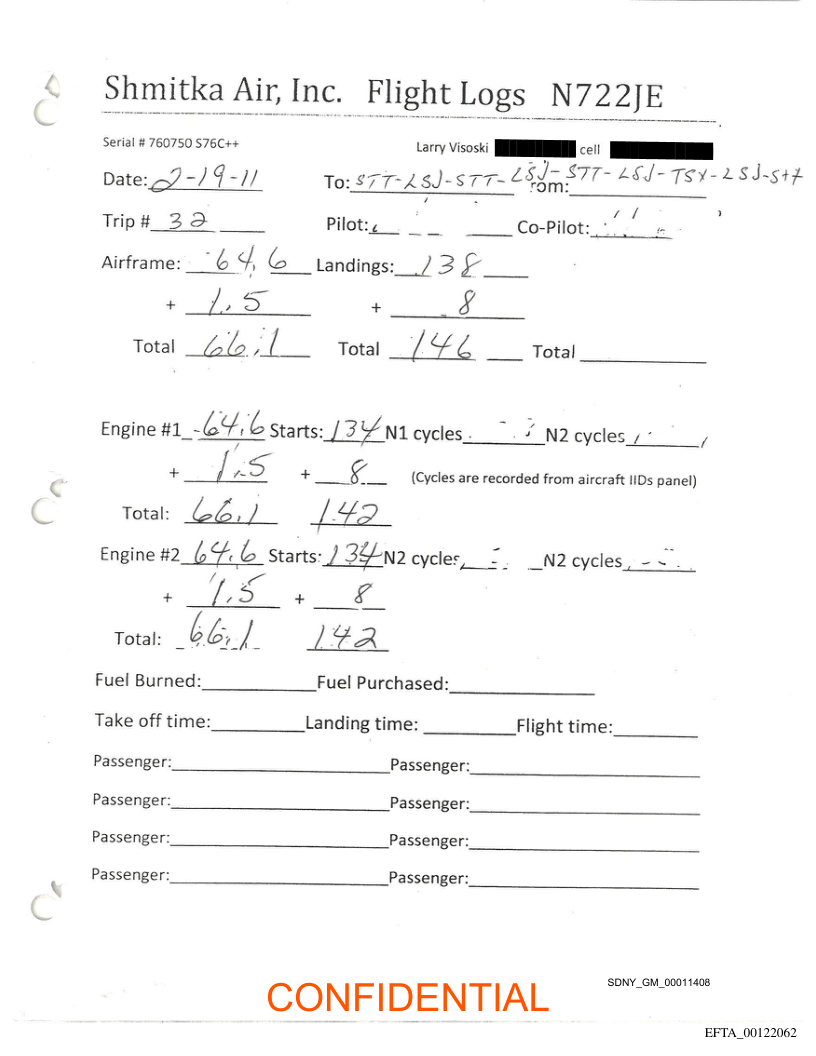 Shmitka Air, Inc. Flight Logs N722JE
Serial # 760750 S76C++ Larry Visoski cell
Date: 2-19-11 To: STT-LSJ-STT-LSJ-STT-LSJ-TSX-LSJ-STT rom:
Trip # 32 Pilot: Co-Pilot:
Airframe: 64.6 Landings: 138
+ 1.5 + 8
Total 66.1 Total 146 Total
Engine #1 64.6 Starts: 134 N1 cycles N2 cycles
+ 1.5 + 8 (Cycles are recorded from aircraft IIDs panel)
Total: 66.1 142
Engine #2 64.6 Starts: 134 N2 cycles N2 cycles
+ 1.5 + 8
Total: 66.1 142
Fuel Burned: Fuel Purchased:
Take off time: Landing time: Flight time:
Passenger: Passenger:
Passenger: Passenger:
Passenger: Passenger:
Passenger: Passenger:
SDNY_GM_00011408
CONFIDENTIAL
EFTA_00122062